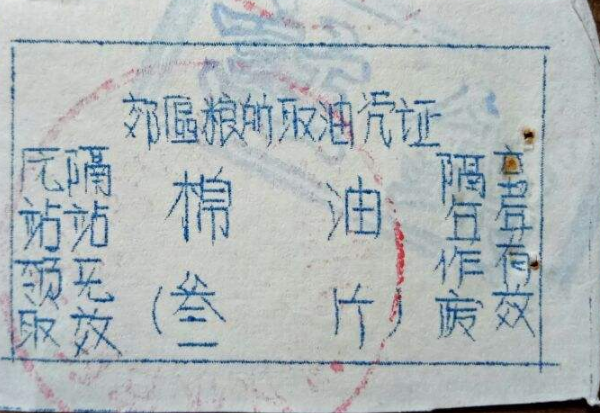 郊區粮的取油凭证
棉油
(叁斤)
当年有效
隔年作废
隔站无效
原站领取